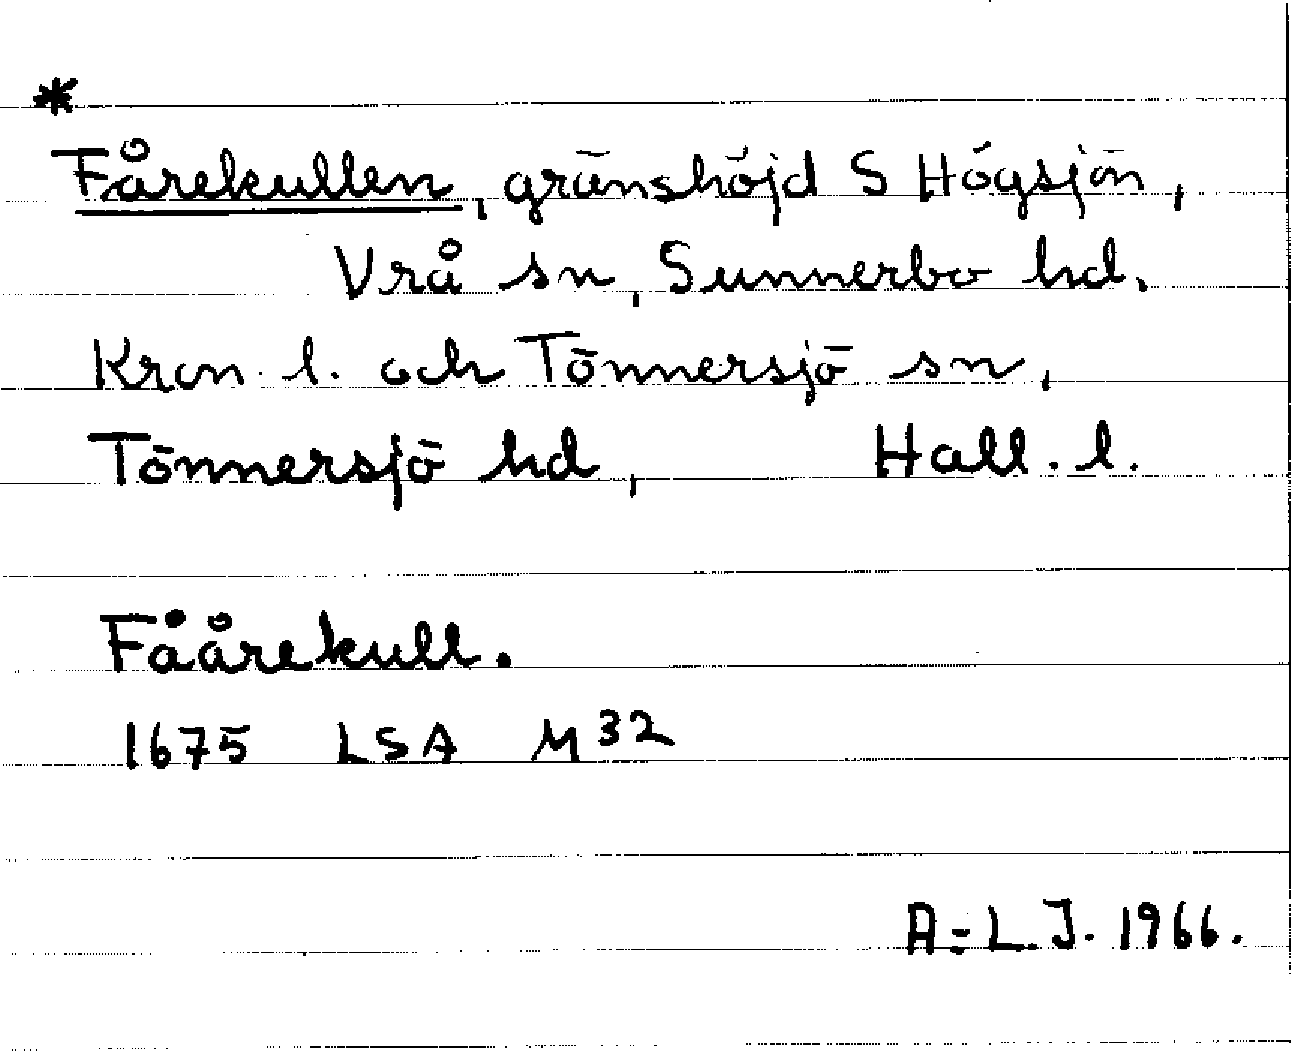 *
Fårekullen, gränshöjd S Högsjön,
Vrå sn, Sunnerbo hd.
Kron. l. och Tönnersjö sn,
Tönnersjö hd, Hall. l.
Fåårekull.
1675 LSA M32
A-L.J. 1966.